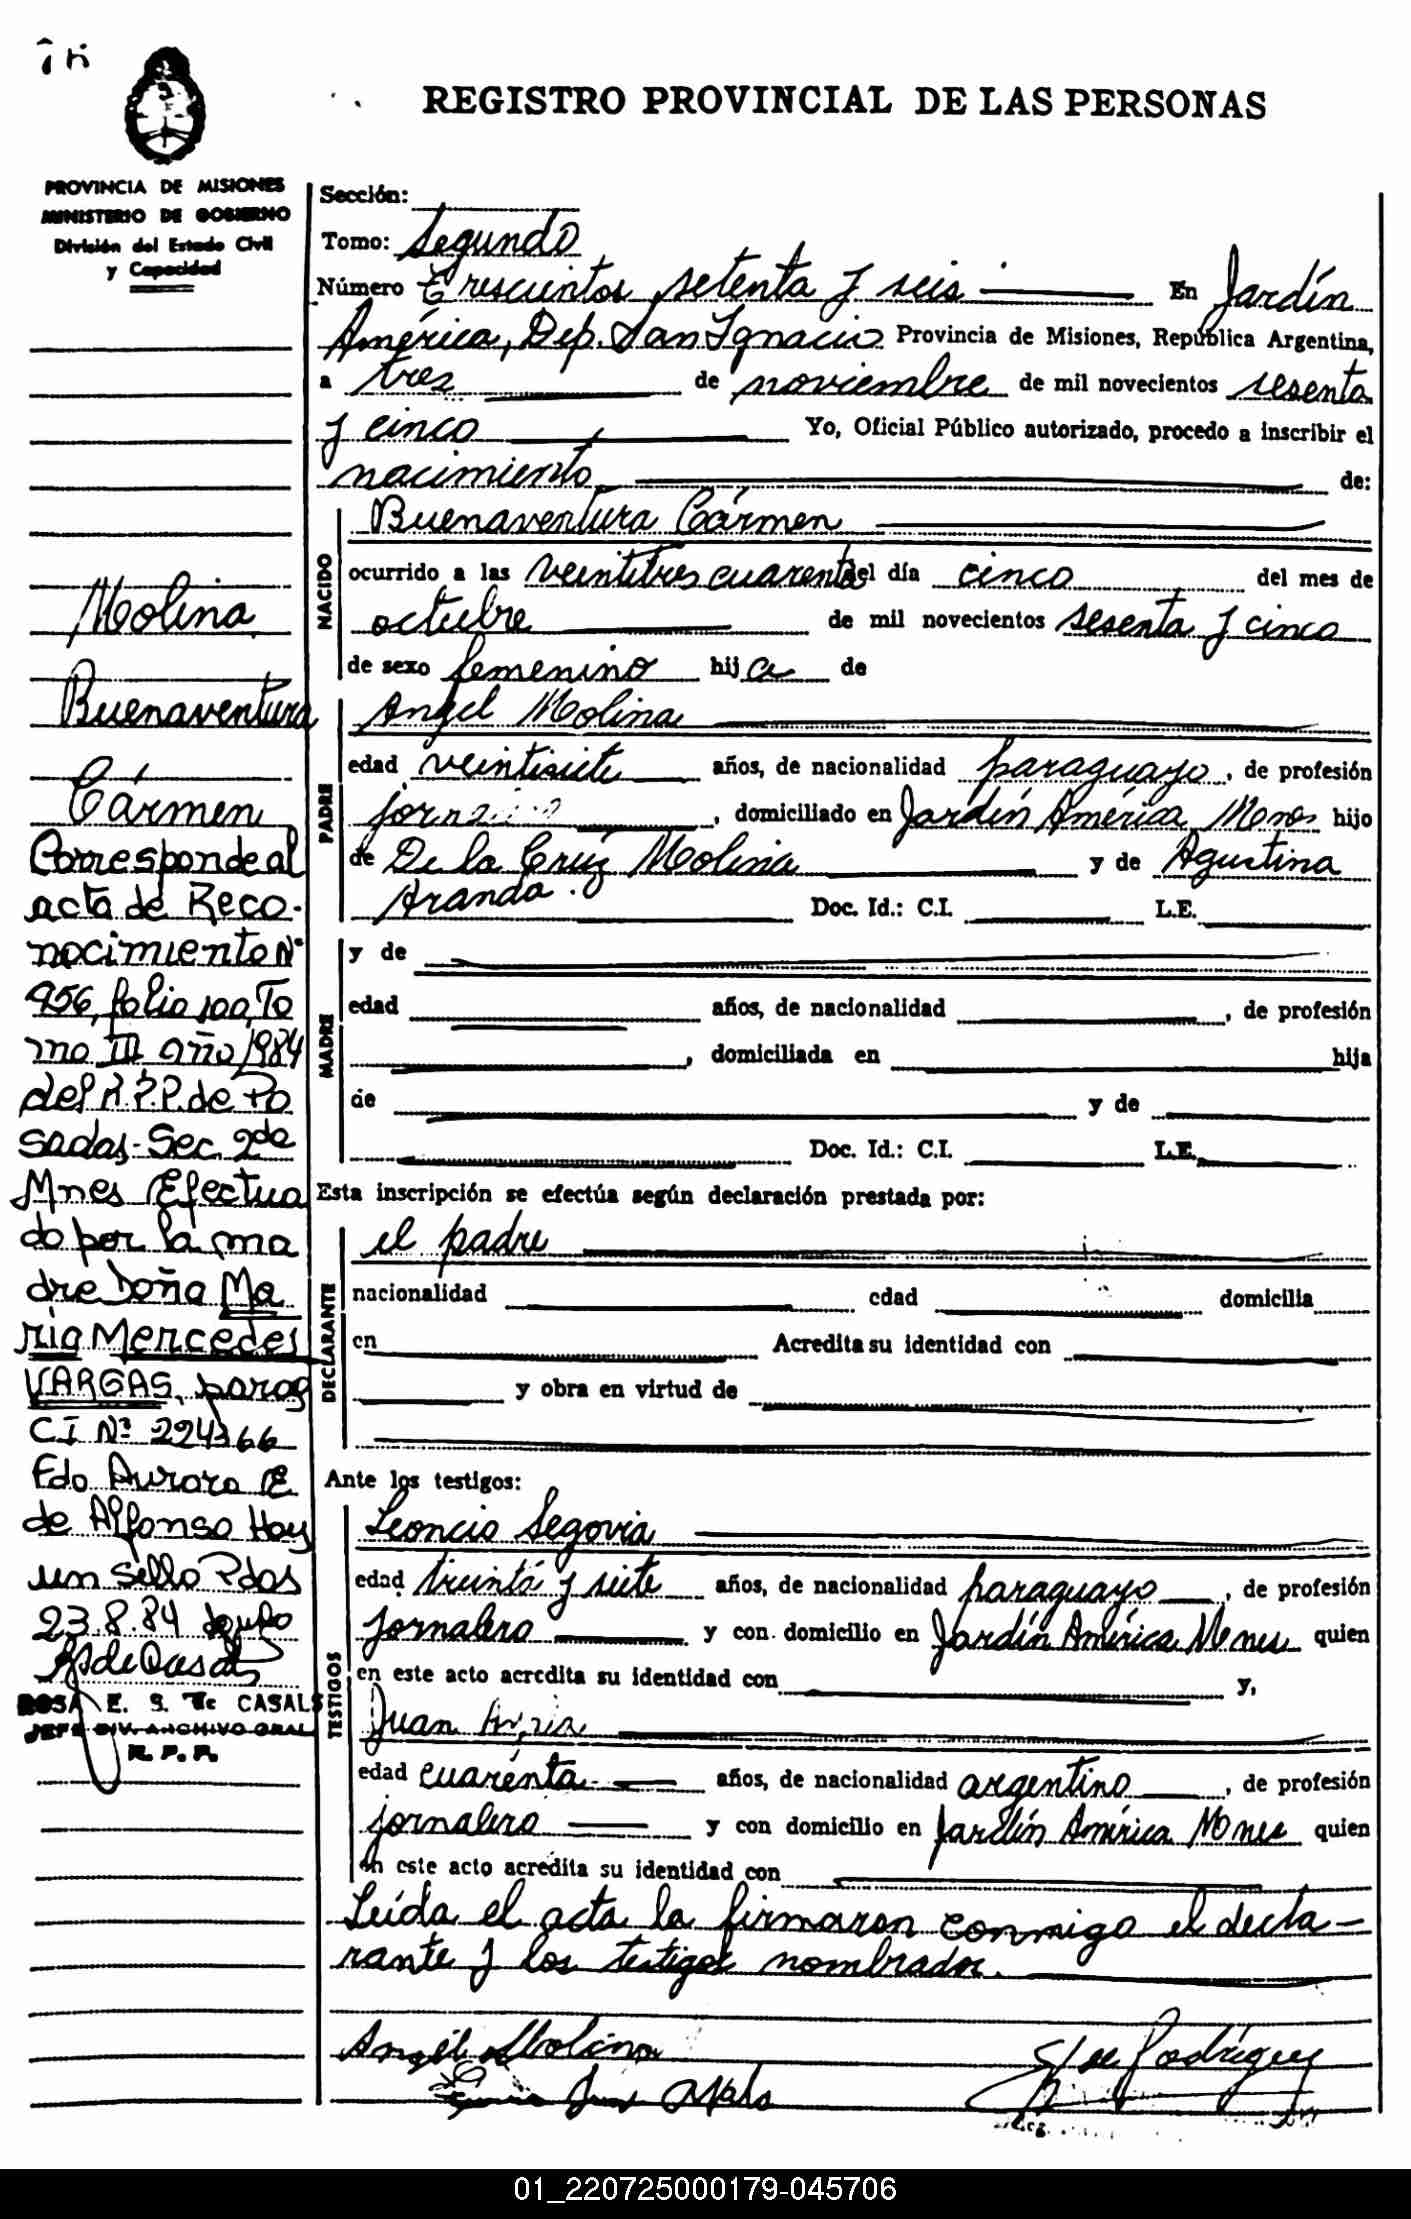 REGISTRO PROVINCIAL DE LAS PERSONAS
PROVINCIA DE MISIONES
MINISTERIO DE GOBIERNO
División del Estado Civil
y Capacidad
Molina
Buenaventura
Cármen
Corresponde al
acta de Reco-
nocimiento Nº
956, folio 100, To
mo III año 1984
del R.P.P. de Po
sadas - Sec 2da
Mnes Efectua
do por la ma
dre Doña Ma
ria Mercedes
VARGAS, parag
CI Nº 224366
Fdo Aurora E
de Alfonso Hay
un sello Pdas
23.8.84
ROSA E. S. de CASALS
JEFE DIV. ARCHIVO GRAL
R. P. P.
Sección:
Tomo: Segundo
Número Trescientos setenta y seis En Jardín
América, Dep. San Ignacio Provincia de Misiones, República Argentina,
a tres de noviembre de mil novecientos sesenta
y cinco Yo, Oficial Público autorizado, procedo a inscribir el
nacimiento de:
NACIDO
Buenaventura Cármen
ocurrido a las veintitres cuarenta del día cinco del mes de
octubre de mil novecientos sesenta y cinco
de sexo femenino hija de
PADRE
Angel Molina
edad veintisiete años, de nacionalidad paraguayo, de profesión
domiciliado en Jardín América Mnes hijo
de De la Cruz Molina y de Agustina
Aranda. Doc. Id.: C.I. L.E.
MADRE
y de
edad años, de nacionalidad , de profesión
, domiciliada en hija
de y de
Doc. Id.: C.I. L.E.
Esta inscripción se efectúa según declaración prestada por:
DECLARANTE
el padre
nacionalidad edad domicilia
en Acredita su identidad con
y obra en virtud de
Ante los testigos:
TESTIGOS
Leoncio Segovia
edad treinta y siete años, de nacionalidad paraguayo, de profesión
jornalero y con domicilio en Jardín América Mnes quien
en este acto acredita su identidad con y,
Juan
edad cuarenta años, de nacionalidad argentino, de profesión
jornalero y con domicilio en Jardín América Mnes quien
en este acto acredita su identidad con
Leída el acta la firmaron conmigo el decla-
rante y los testigos nombrados.
Angel Molina
Rodríguez
01_220725000179-045706